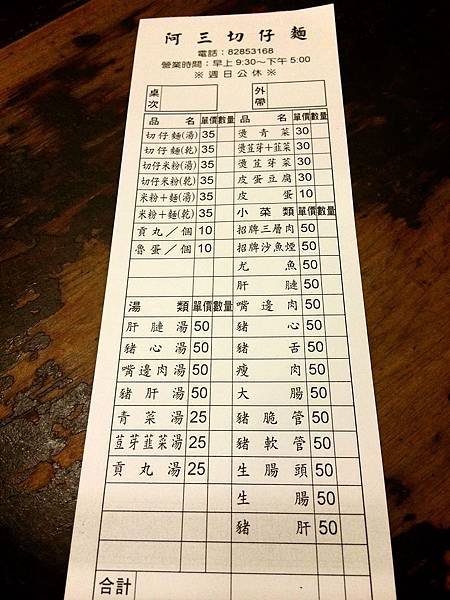 阿三切仔麵
電話：82853168
營業時間：早上9:30～下午5:00
※週日公休※
桌次 外帶
品名 單價 數量 品名 單價 數量
切仔麵(湯) 35 燙青菜 30
切仔麵(乾) 35 燙荳芽＋韮菜 30
切仔米粉(湯) 35 燙荳芽菜 30
切仔米粉(乾) 35 皮蛋豆腐 30
米粉＋麵(湯) 35 皮蛋 10
米粉＋麵(乾) 35 小菜類 單價 數量
貢丸／個 10 招牌三層肉 50
魯蛋／個 10 招牌沙魚煙 50
尤魚 50
肝腱 50
湯類 單價 數量 嘴邊肉 50
肝腱湯 50 豬心 50
豬心湯 50 豬舌 50
嘴邊肉湯 50 瘦肉 50
豬肝湯 50 大腸 50
青菜湯 25 豬脆管 50
荳芽韮菜湯 25 豬軟管 50
貢丸湯 25 生腸頭 50
生腸 50
豬肝 50
合計